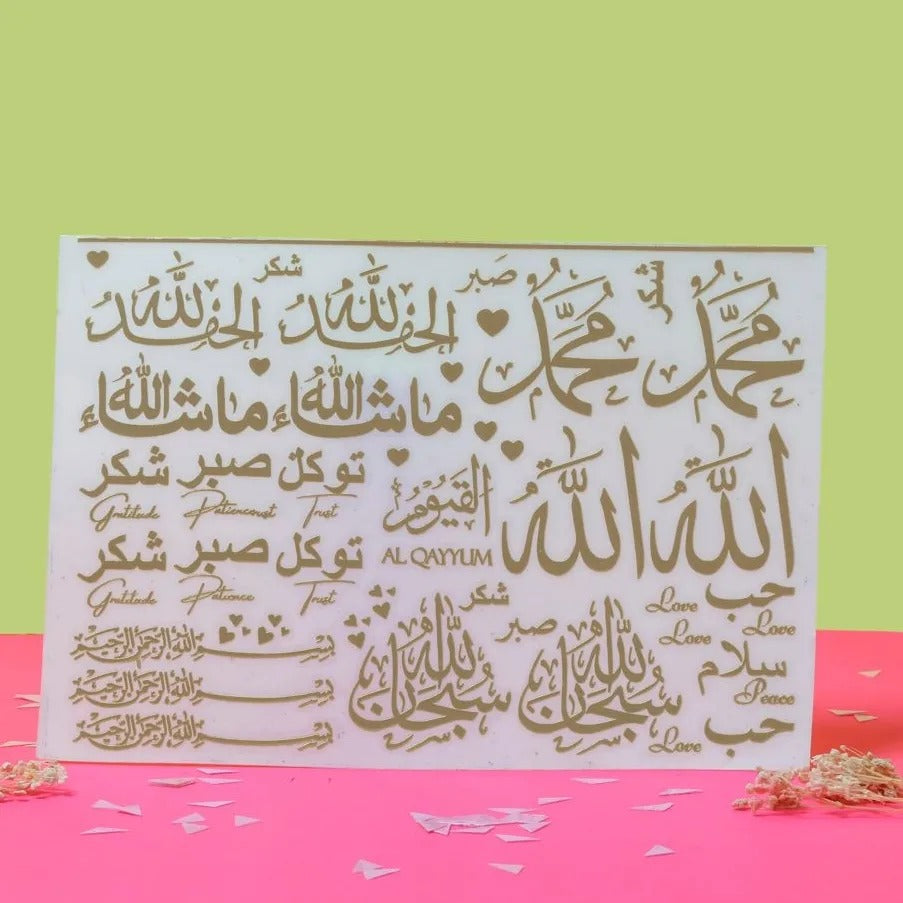 الحمد لله شكر الحمد لله صَبر محمد شكر محمد
ما شاء الله ما شاء الله
شكر صبر توكل
Gratitude Patienceust Trust
القيوم
AL QAYYUM
الله الله
شكر صبر توكل
Gratitude Patience Trust
بسم الله الرحمن الرحيم
بسم الله الرحمن الرحيم
بسم الله الرحمن الرحيم
سُبْحَانَ اللّٰه شكر صبر سُبْحَانَ اللّٰه
حب
Love
Love
Love
سلام
Peace
حب
Love